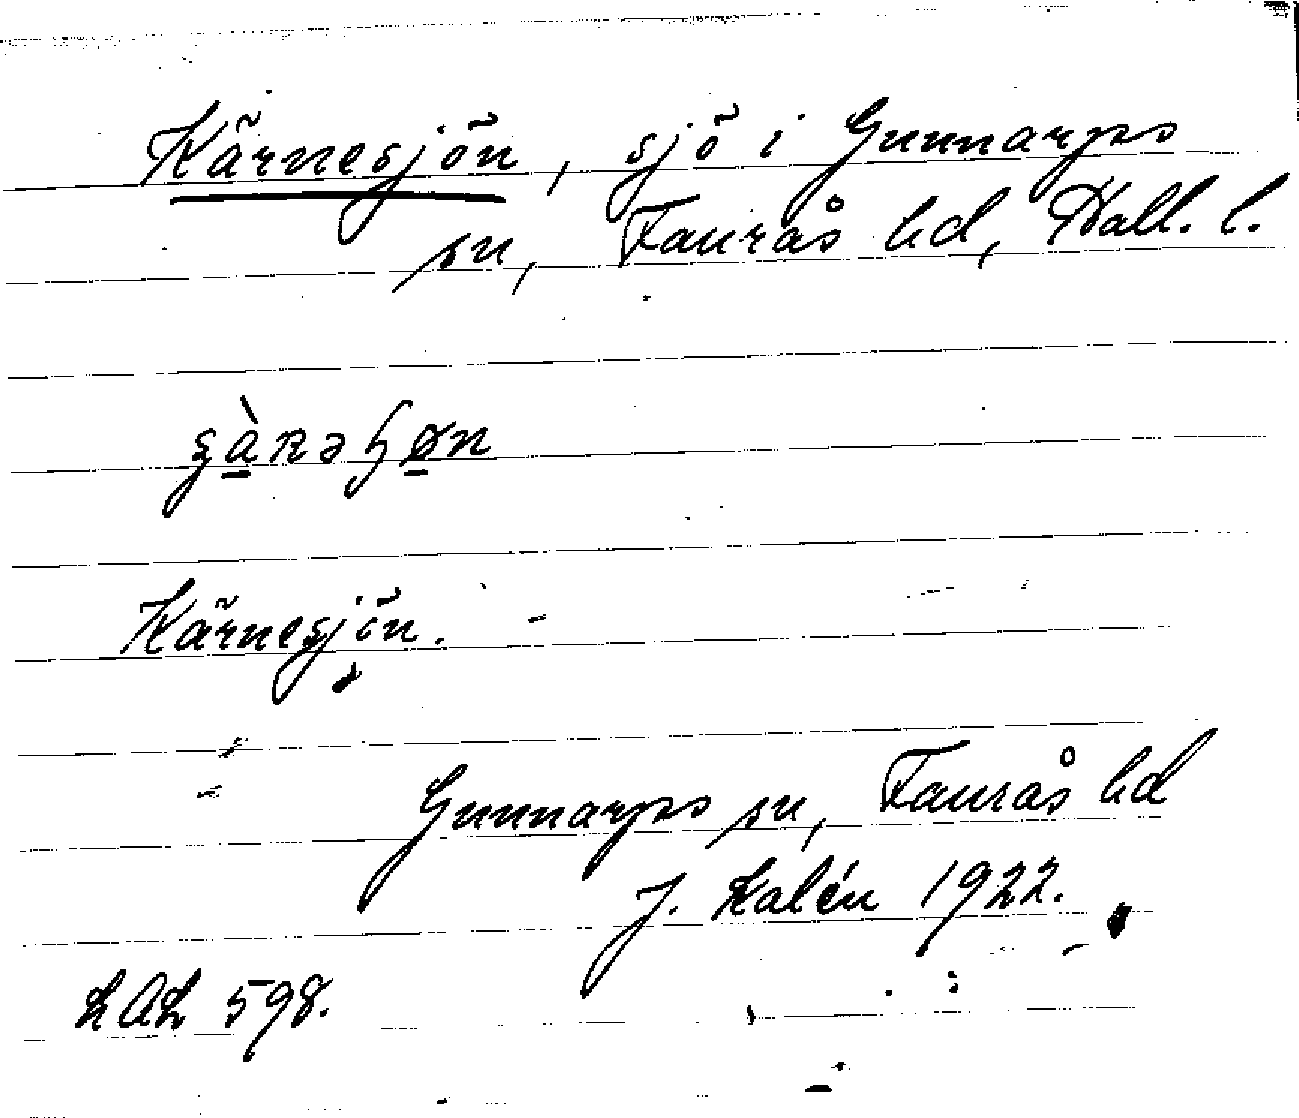 Kärnesjön, sjö i Gunnarps
sn, Faurås hd, Hall. l.
Kärnesjön.
Gunnarps sn, Faurås hd
J. Kalén 1922.
LAL 598.